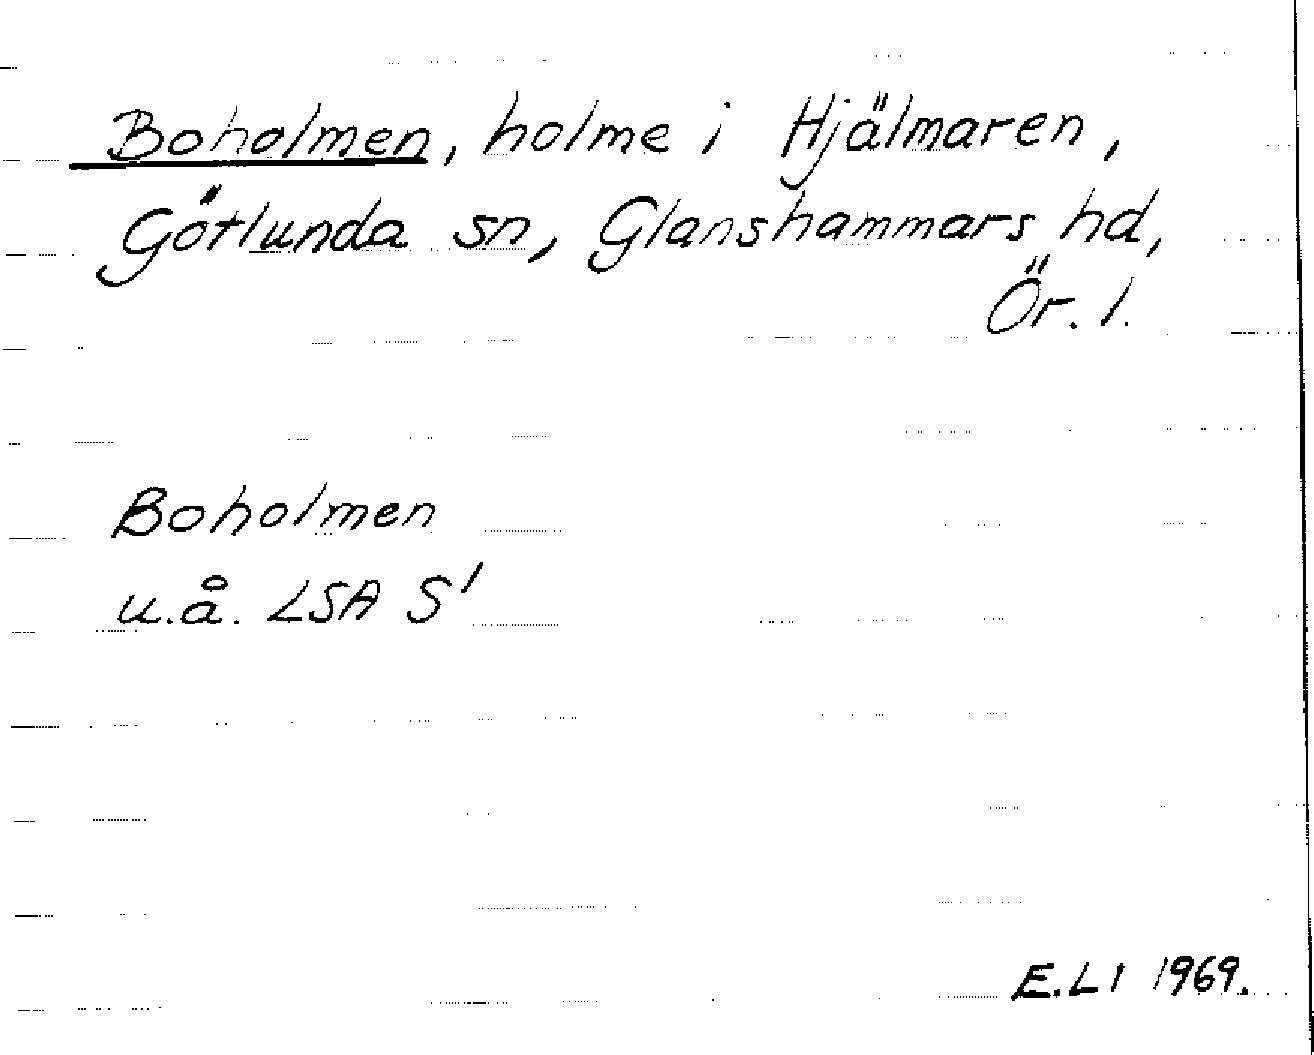 Boholmen, holme i Hjälmaren,
Götlunda sn, Glanshammars hd,
Ör. l.
Boholmen
u.å. LSA S'
E.Ll 1969.